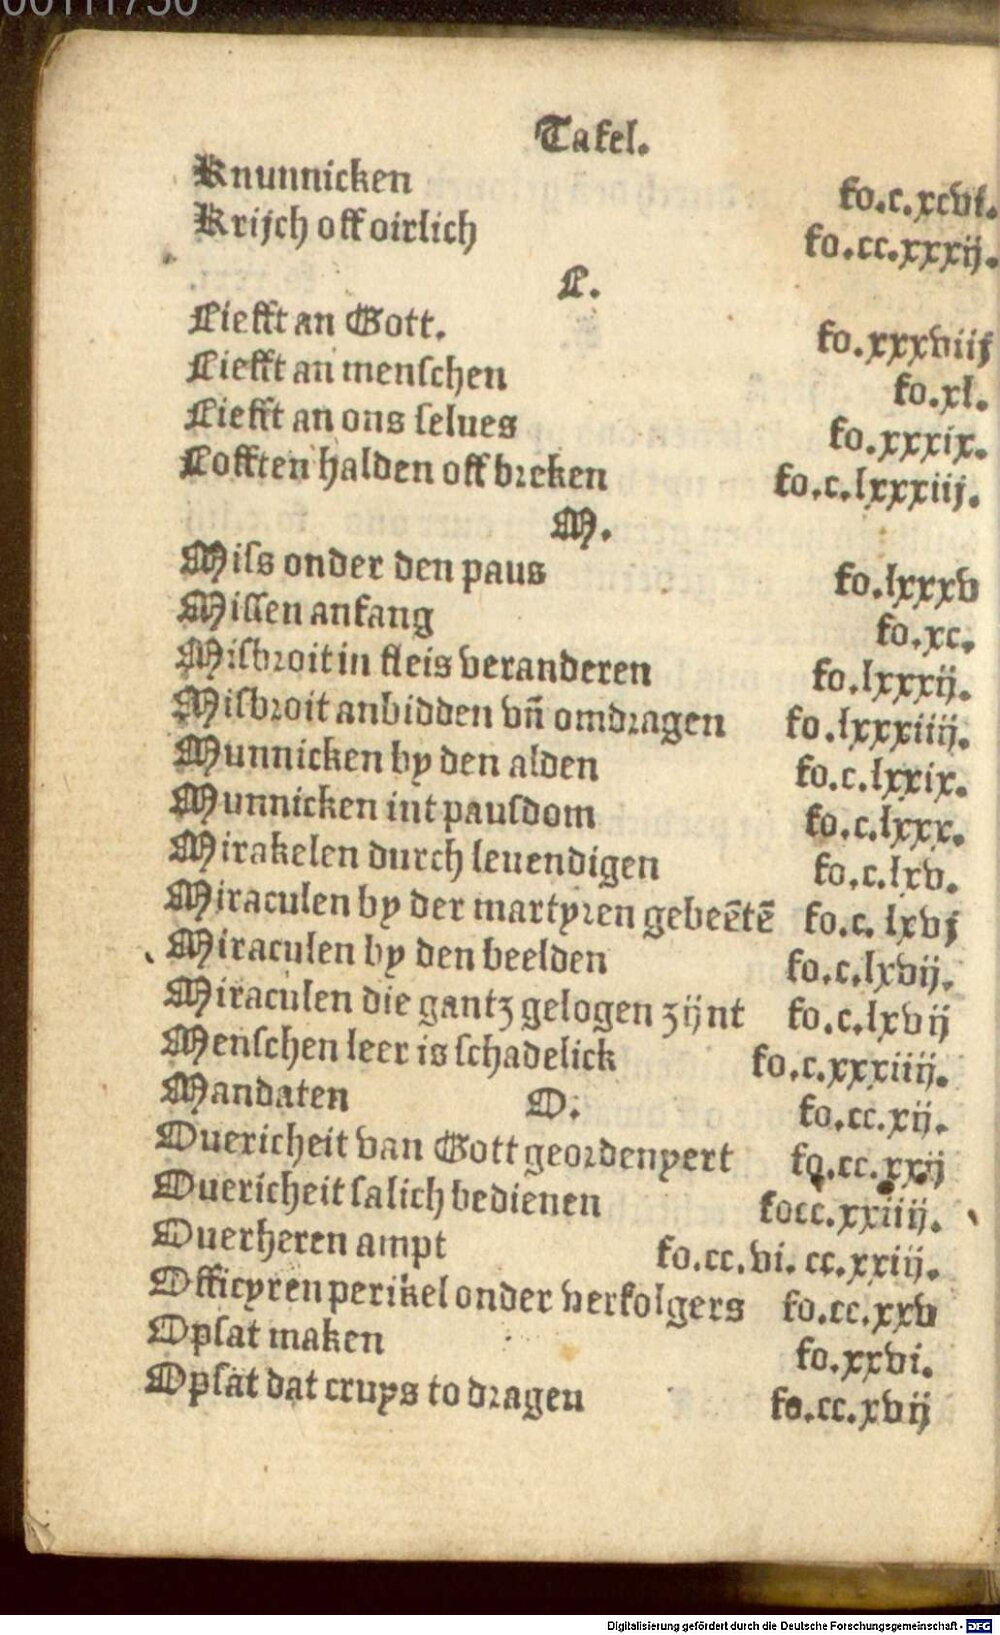 Tafel.
Knunnicken fo.c.xcvi.
Krijch off oirlich fo.cc.xxxij.
L.
Liefft an Gott. fo.xxxviij
Liefft an menschen fo.xl.
Liefft an ons selues fo.xxxix.
Lofften halden off breken fo.c.lxxxiij.
M.
Miss onder den paus fo.lxxxv
Missen anfang fo.xc.
Misbroit in fleis veranderen fo.lxxxij.
Misbroit anbidden vn̄ omdragen fo.lxxxiiij.
Munnicken by den alden fo.c.lxxix.
Munnicken int pausdom fo.c.lxxx.
Mirakelen durch leuendigen fo.c.lxv.
Miraculen by der martyren gebeētē fo.c. lxvj
Miraculen by den beelden fo.c.lxvij.
Miraculen die gantz gelogen zijnt fo.c.lxvij
Menschen leer is schadelick fo.c.xxxiiij.
Mandaten O. fo.cc.xij.
Ouericheit van Gott geordenyert fo.cc.xxij
Ouericheit salich bedienen focc.xxiiij.
Ouerheren ampt fo.cc.vi. cc.xxiij.
Officyren perikel onder verfolgers fo.cc.xxv
Opsat maken fo.xxvi.
Opsat dat cruys to dragen fo.cc.xvij
Digitalisierung gefördert durch die Deutsche Forschungsgemeinschaft - DFG